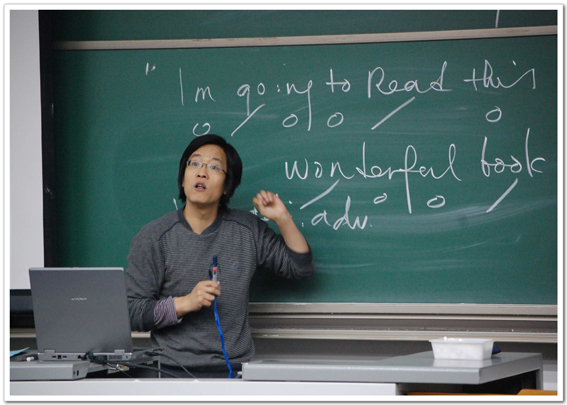 "Im going to Read this
wonderful book
: adv.